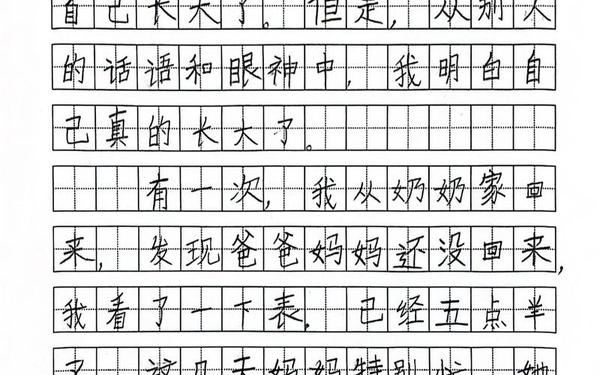 自己长大了。但是，从别人
的话语和眼神中，我明白自
己真的长大了。
有一次，我从奶奶家回
来，发现爸爸妈妈还没回来，
我看了一下表，已经五点半
了，这几天妈妈特别忙，她